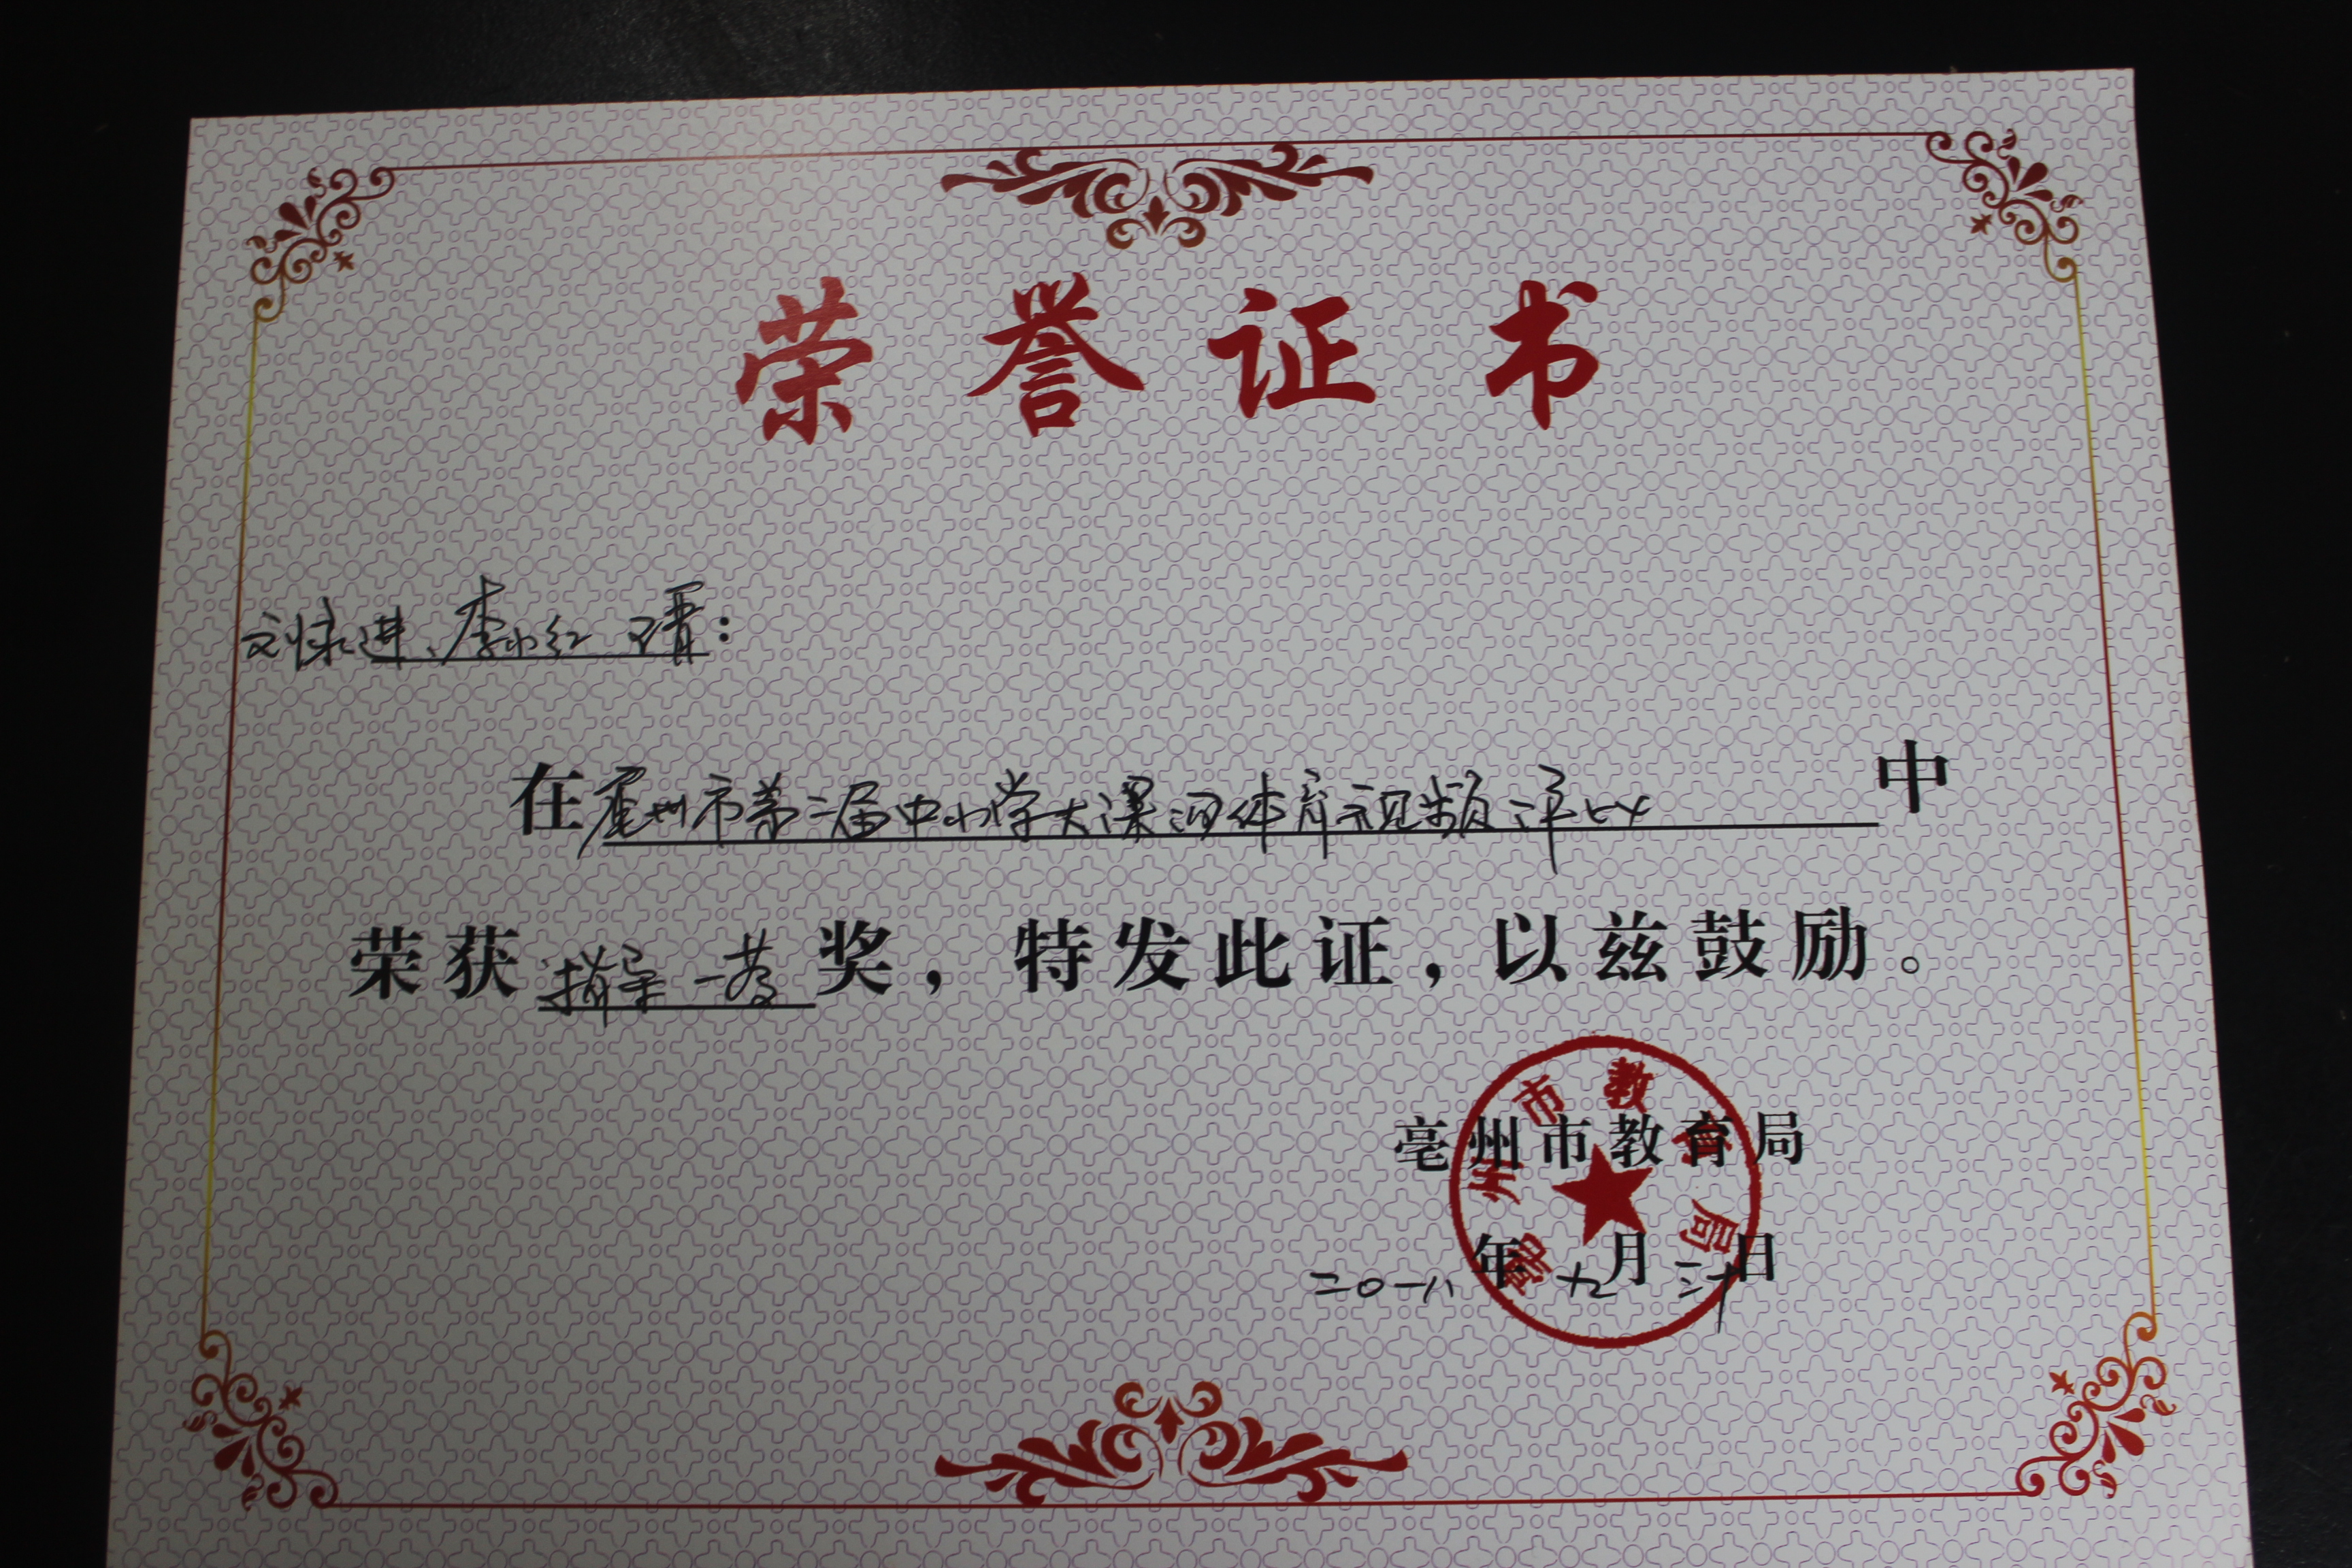 荣誉证书
刘怀进、李小红 老师：
在亳州市第二届中小学大课间体育视频评比中
荣获指导一等奖，特发此证，以兹鼓励。
亳州市教育局
亳州市教育局
二〇一八年九月三十日